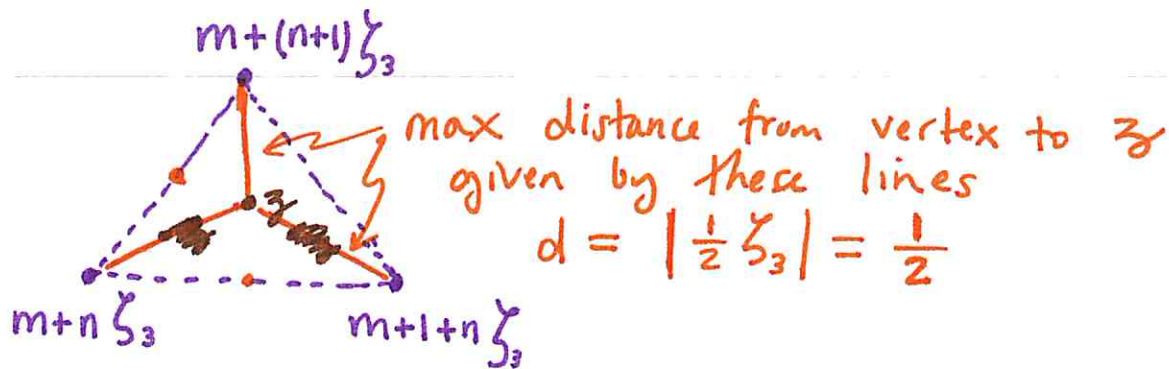 m+(n+1)ζ₃
max distance from vertex to z
given by these lines
z
d = |½ ζ₃| = ½
m+nζ₃
m+1+nζ₃